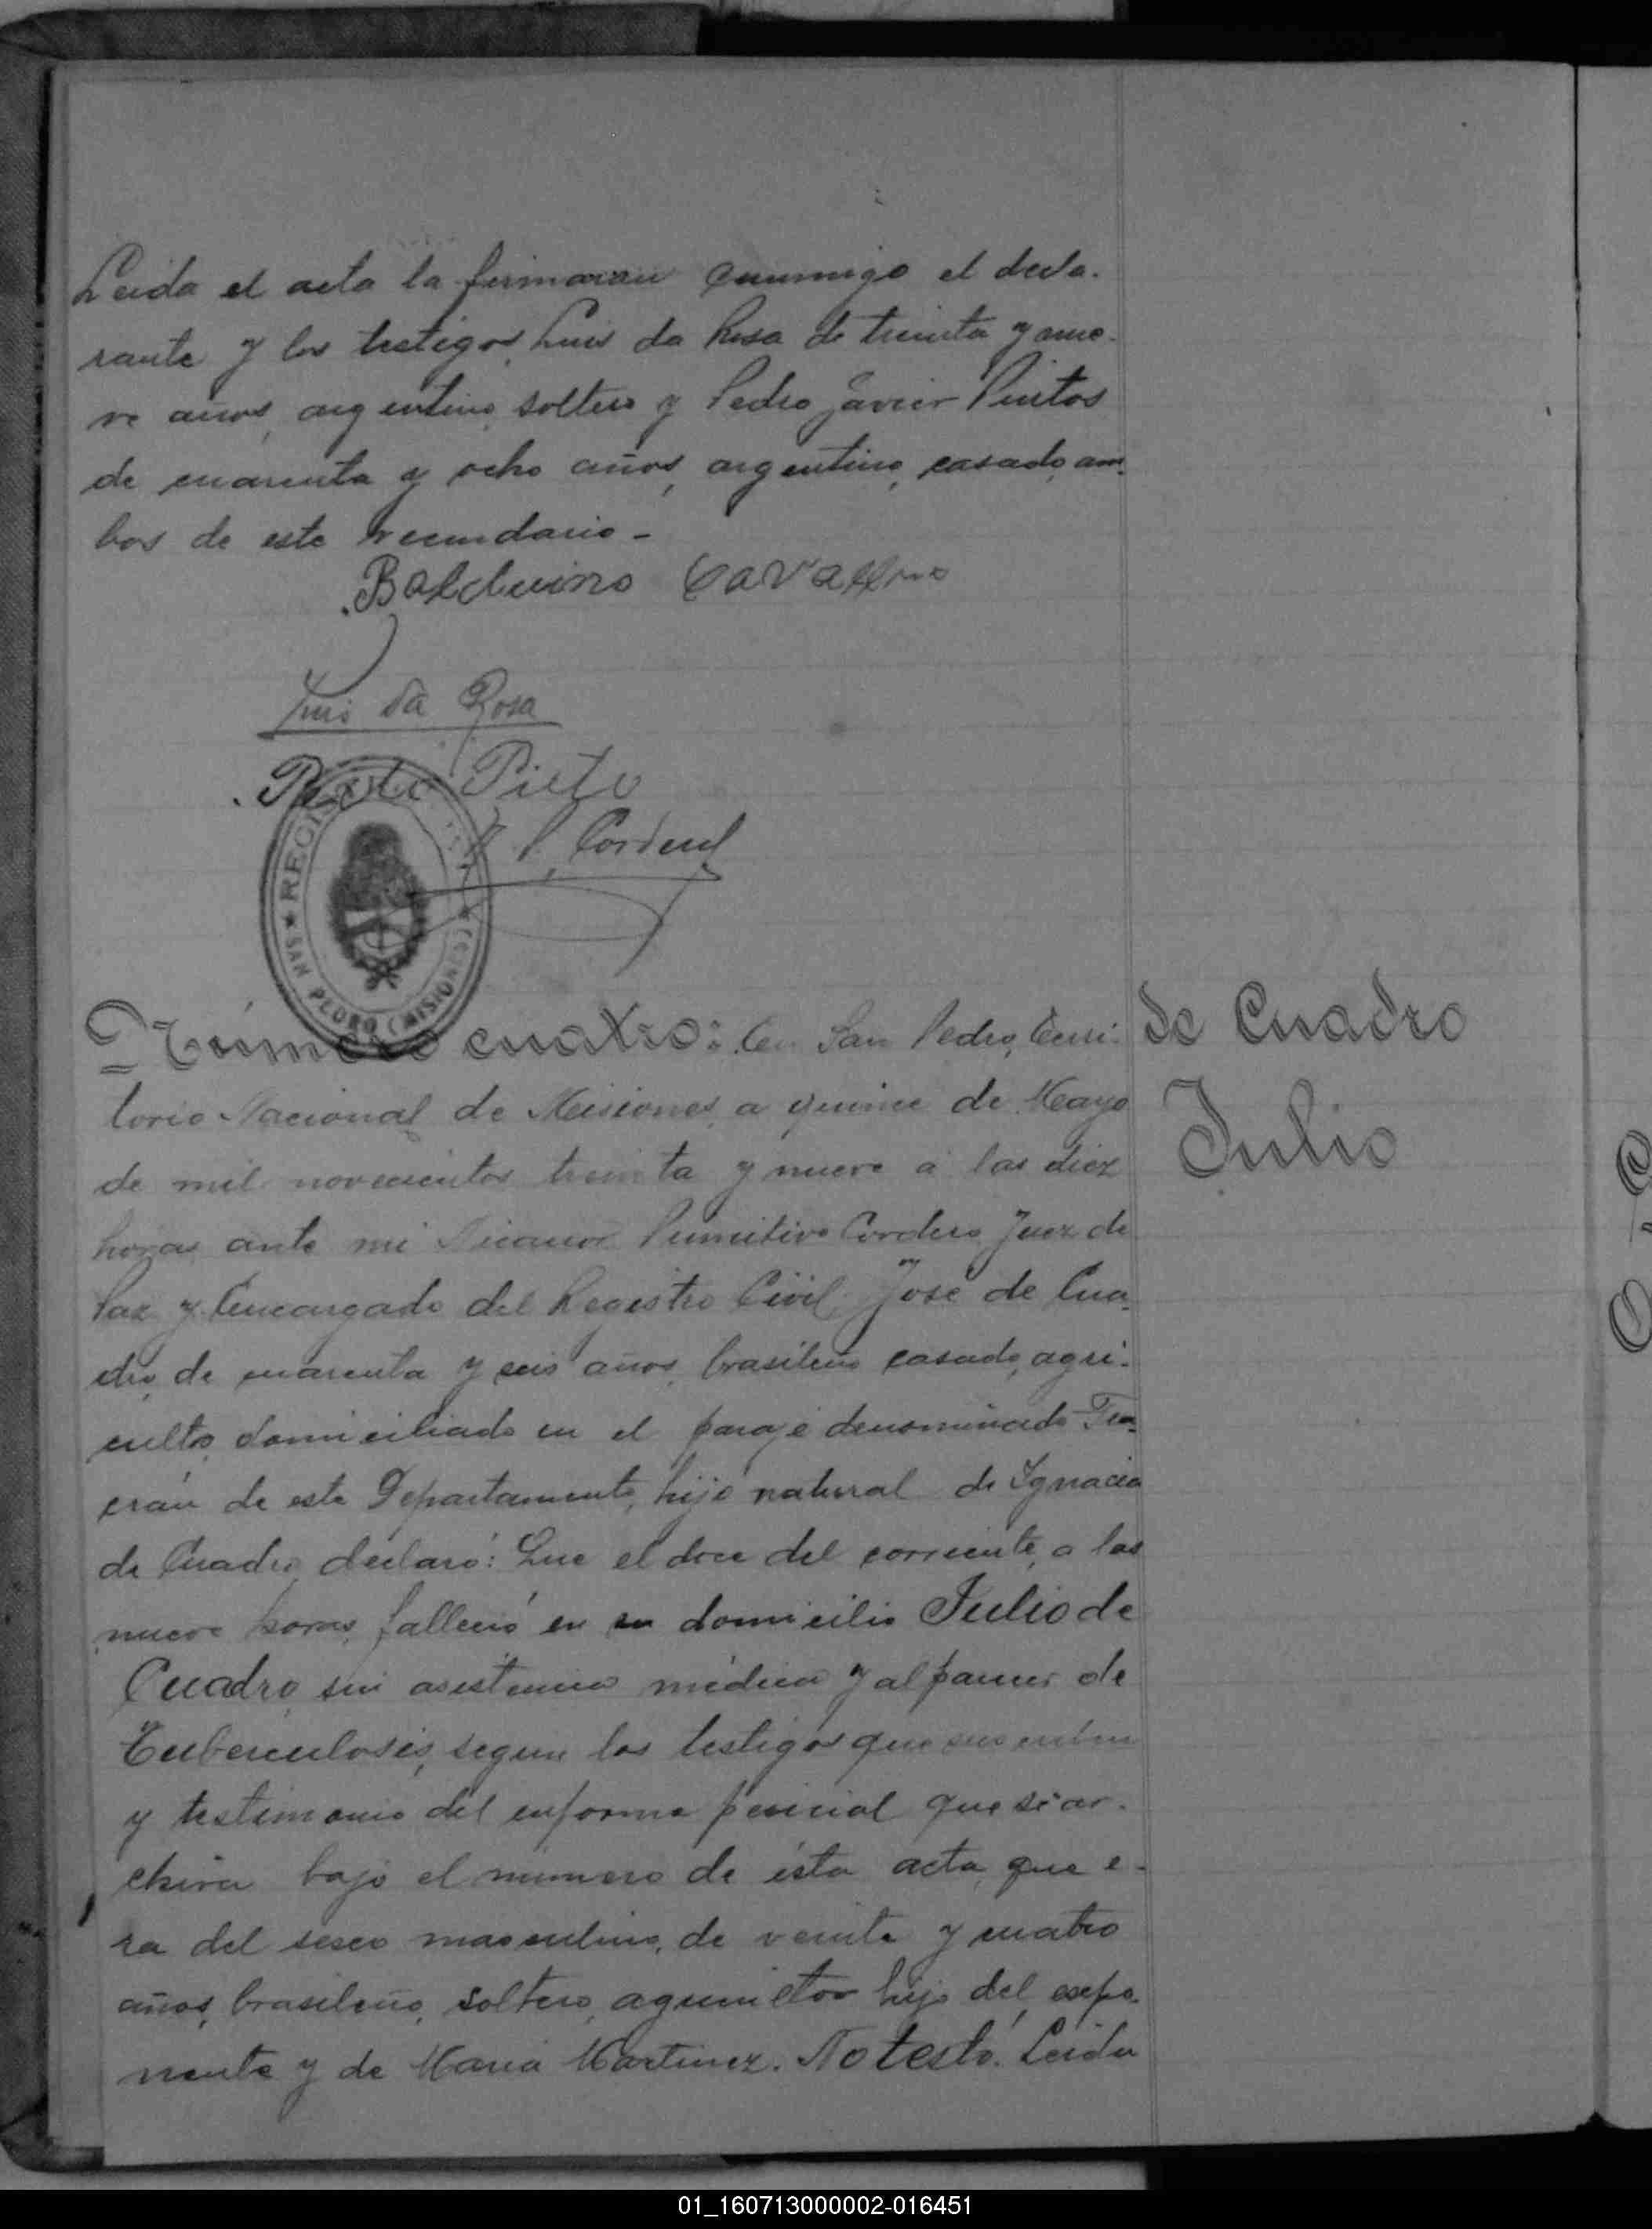 Leida el acta la firmaran conmigo el decla-
rante y los testigos Luis da Rosa de treinta y nue-
ve años, argentino, soltero y Pedro Javier Pintos
de cuarenta y ocho años, argentino, casado, am-
bos de este vecindario -
Balduino
Luis da Rosa
Pinto
P. Cordero
REGIS
★ SAN PEDRO (MISIONES) ★
Número cuatro: En San Pedro, Terri-
torio Nacional de Misiones, a quince de Mayo
de mil novecientos treinta y nueve a las diez
horas ante mi Nicanor Primitivo Cordero Juez de
Paz y Encargado del Registro Civil José de Cua-
dro, de cuarenta y seis años, brasileño casado, agri-
cultor, domiciliado en el paraje denominado
de este Departamento, hijo natural de Ignacia
de Cuadro, declaró: Que el doce del corriente, a las
nueve horas, falleció en su domicilio Julio de
Cuadro, sin asistencia médica y al parecer de
Tuberculosis, segun los testigos que suscriben
y testimonio del informe pericial que se ar-
chiva bajo el número de ésta acta, que e-
ra del sexo masculino, de veinte y cuatro
años, brasileño, soltero, agricultor hijo del expo-
nente y de Maria Martinez. No testó. Leida
de Cuadro
Julio
01_160713000002-016451